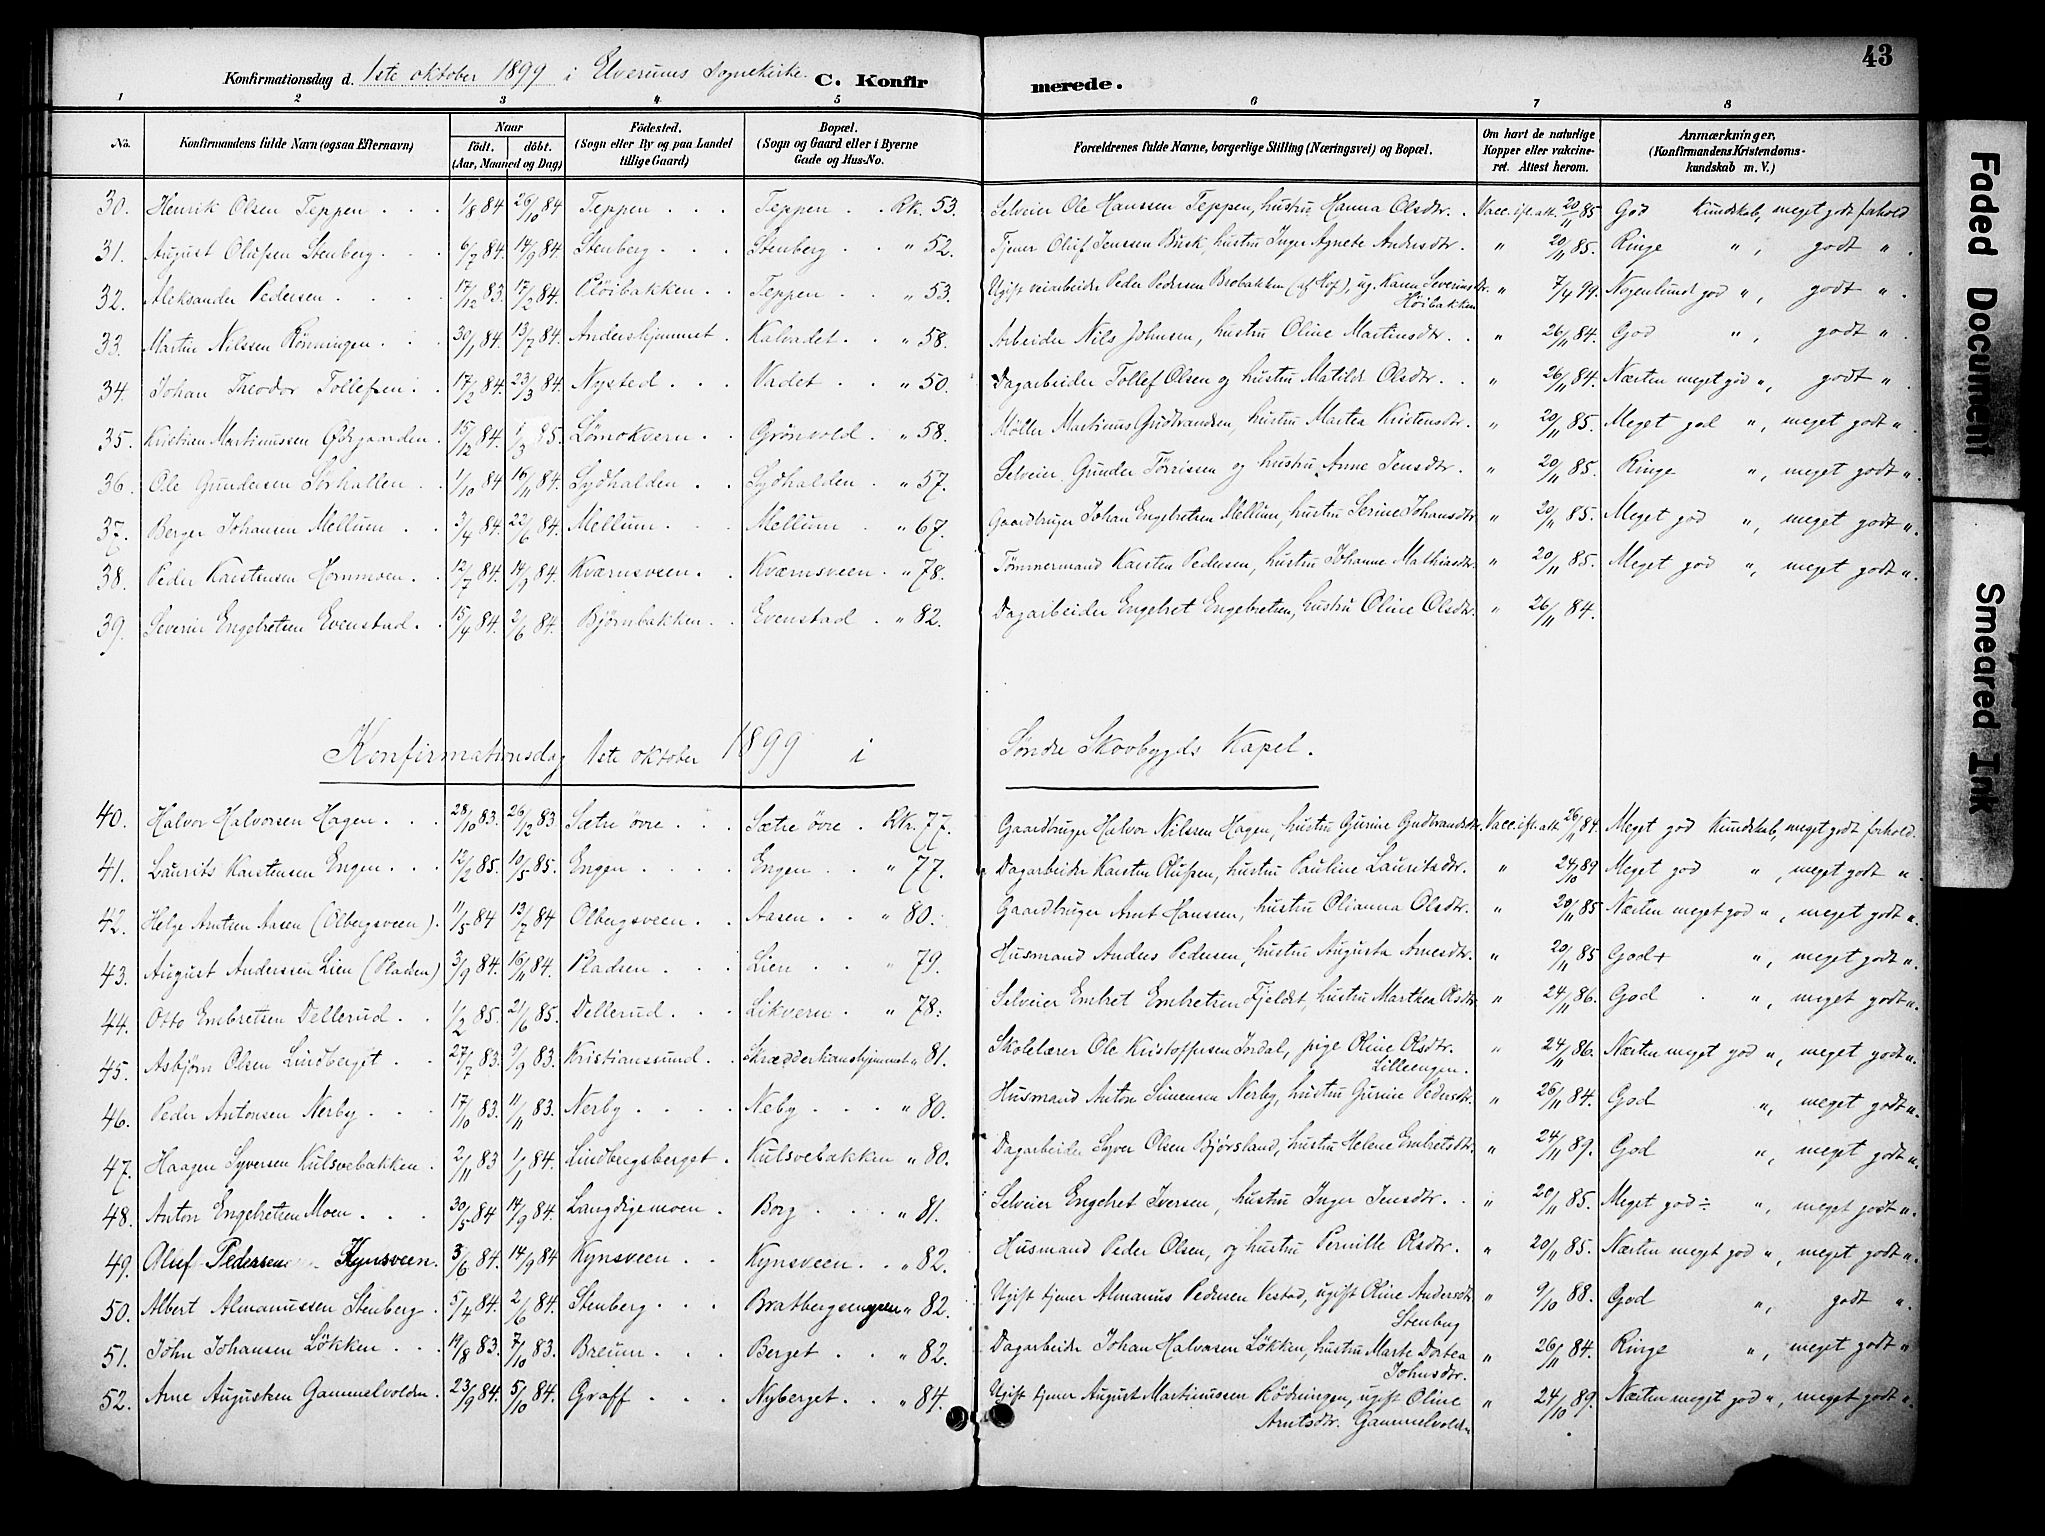 43
Konfirmationsdag d. 1ste oktober 1899 i Elverums Sognekirke. C. Konfirmerede.
1 2 3 4 5 6 7 8
No. Konfirmandens fulde Navn (ogsaa Efternavn) Naar født. døbt. (Aar, Maaned og Dag) Fødested. (Sogn eller By og paa Landet tillige Gaard) Bopæl. (Sogn og Gaard eller i Byerne Gade og Hus-No. Forældrenes fulde Navne, borgerlige Stilling (Næringsvei) og Bopæl. Om havt de naturlige Kopper eller vakcineret. Attest herom. Anmærkninger. (Konfirmandens Kristendomskundskab m. V.)
30. Henrik Olsen Teppen 1/8 84 26/10 84 Teppen Teppen Rk. 53. Selveier Ole Hanssen Teppen, hustru Hanna Olsdtr. Vacc. ifl. att. 20/11 85 God Kundskab, meget godt forhold
31. August Olufsen Stenberg 6/7 84. 14/9 84. Stenberg Stenberg " 52. Tjener Oluf Jenssen Busk, hustru Inger Agnete Andersdtr. " 20/11 85. Ringe ", godt ".
32. Aleksander Pedersen 17/12 83. 17/2 84. Høibakken Teppen " 53. Ugift veiarbeider Peder Pedersen Brobakken (af Hof), ug. Karen Severinsdtr. Høibakken " 7/4 99. Nogenlund god ", godt ".
33. Martin Nilssen Rønningen 30/1 84. 13/7 84. Anderskjemmet Kalvadet " 58. Arbeider Nils Johnsen, hustru Oline Martinsdtr. " 26/11 84. God ", godt "
34. Johan Theodor Tollefsen 17/2 84. 23/3 84. Nysted Vadet " 50. Dagarbeider Tollef Olsen og hustru Matilde Olsdtr. " 26/11 84. Næsten meget god ", godt ".
35. Kristian Martinussen Ødegaarden 15/12 84. 8/3 85. Lømokvern Grønvold " 58. Møller Martinus Gudbrandsen, hustru Martea Kristensdtr. " 20/11 85. Meget god ", meget godt ".
36. Ole Gundersen Sørhallen 1/10 84 16/11 84. Sydhalden Sydhalden " 57. Selveier Gunder Tørrissen og hustru Anne Jensdtr. " 20/11 85. Ringe ", meget godt ".
37. Berger Johansen Mellum 3/4 84. 22/6 84. Mellum Mellum " 67. Gaardbruger Johan Engebretsen Mellum, hustru Serine Johansdtr " 20/11 85. Meget god ", meget godt ".
38. Peder Karstensen Hornmoen 12/7 84. 14/9 84. Kværnsveen Kværnsveen " 78. Tømmermand Karsten Pedersen, hustru Johanne Mathiasdtr " 20/11 85. Meget god ", meget godt ".
39. Severin Engebretsen Evenstad 15/4 84. 2/6 84. Bjørnbakken Evenstad " 82. Dagarbeider Engebret Engebretsen, hustru Oline Olsdtr. " 26/11 84.
Konfirmationsdag 1ste oktober 1899 i Søndre Skovbygds Kapel.
40. Halvor Halvorsen Hagen 28/10 83. 26/12 83 Sætre øvre Sætre øvre Rk. 77. Gaardbruger Halvor Nilssen Hagen, hustru Gurine Gudbrandsdtr. Vacc. ifl. att. 26/11 84. Meget god Kundskab, meget godt forhold.
41. Laurits Karstensen Engen 12/2 85. 10/5 85. Engen Engen " 77. Dagarbeider Karsten Olufsen, hustru Pauline Lauritsdtr. " 24/10 89 Meget god ", meget godt ".
42. Helge Arntsen Aasen (Olbergsveen) 11/5 84 13/7 84 Olbergsveen Aasen " 80. Gaardbruger Arnt Hanssen, hustru Olianna Olsdtr. " 20/11 85 Næsten meget god ", meget godt ".
43. August Anderssen Lien (Pladsen) 3/9 84. 16/11 84. Pladsen Lien " 79. Husmand Anders Pedersen, hustru Augusta Arnesdtr. " 20/11 85 God + ", meget godt ".
44. Otto Embretsen Dellerud 1/2 85. 21/6 85. Dellerud Likvern " 78. Selveier Embret Embretsen Fjeldet, hustru Marthea Olsdtr " 24/11 86. God ", meget godt ".
45. Asbjørn Olsen Lindberget 27/7 83. 9/9 83. Kristianssund Skrædderhanshjemmet " 81. Skolelærer Ole Kristoffersen Jordal, pige Oline Olsdtr. Lilleengen. " 24/11 86. Næsten meget god ", meget godt ".
46. Peder Antonsen Nerby 17/10 83. 11/11 83. Nerby Neby " 80. Husmand Anton Simensen Nerby, hustru Gurine Pedersdtr. " 26/11 84. God ", meget godt ".
47. Haagen Syversen Kulsvebakken 2/11 83 1/1 84. Lindbergsberget Kulsvebakken " 80. Dagarbeider Syver Olsen Bjørsland, hustru Helene Embretsdtr. " 24/11 89. God ", meget godt ".
48. Anton Engebretsen Moen 30/5 84 14/9 84. Langdigemoen Borg " 81. Selveier Engebret Iversen, hustru Inger Jensdtr. " 20/11 85. Meget god ÷ ", meget godt ".
49. Oluf Pedersen Kynsveen. 3/6 84. 14/9 84 Kynsveen Kynsveen " 82. Husmand Peder Olsen, og hustru Pernille Olsdtr. " 20/11 85. Næsten meget god ", meget godt ".
50. Albert Almanussen Stenberg 5/4 84. 2/6 84. Stenberg Bratbergsengen " 82. Ugift tjener Almanus Pedersen Vestad, ugift Oline Andersdtr Stenberg " 9/10 88. God ", godt ".
51. John Johansen Løkken 19/8 83. 7/10 83. Breum Berget " 82. Dagarbeider Johan Halvorsen Løkken, hustru Marte Dortea Johnsdtr. " 26/11 84. Ringe ", meget godt "
52. Arne Augustsen Gammelvolden 23/9 84. 5/10 84. Graff Nyberget " 84. Ugift tjener August Martinussen Rødningen, ugift Oline Arntsdtr. Gammelvolden " 24/10 89. Næsten meget god ", meget godt ".
Faded Document
Smeared Ink